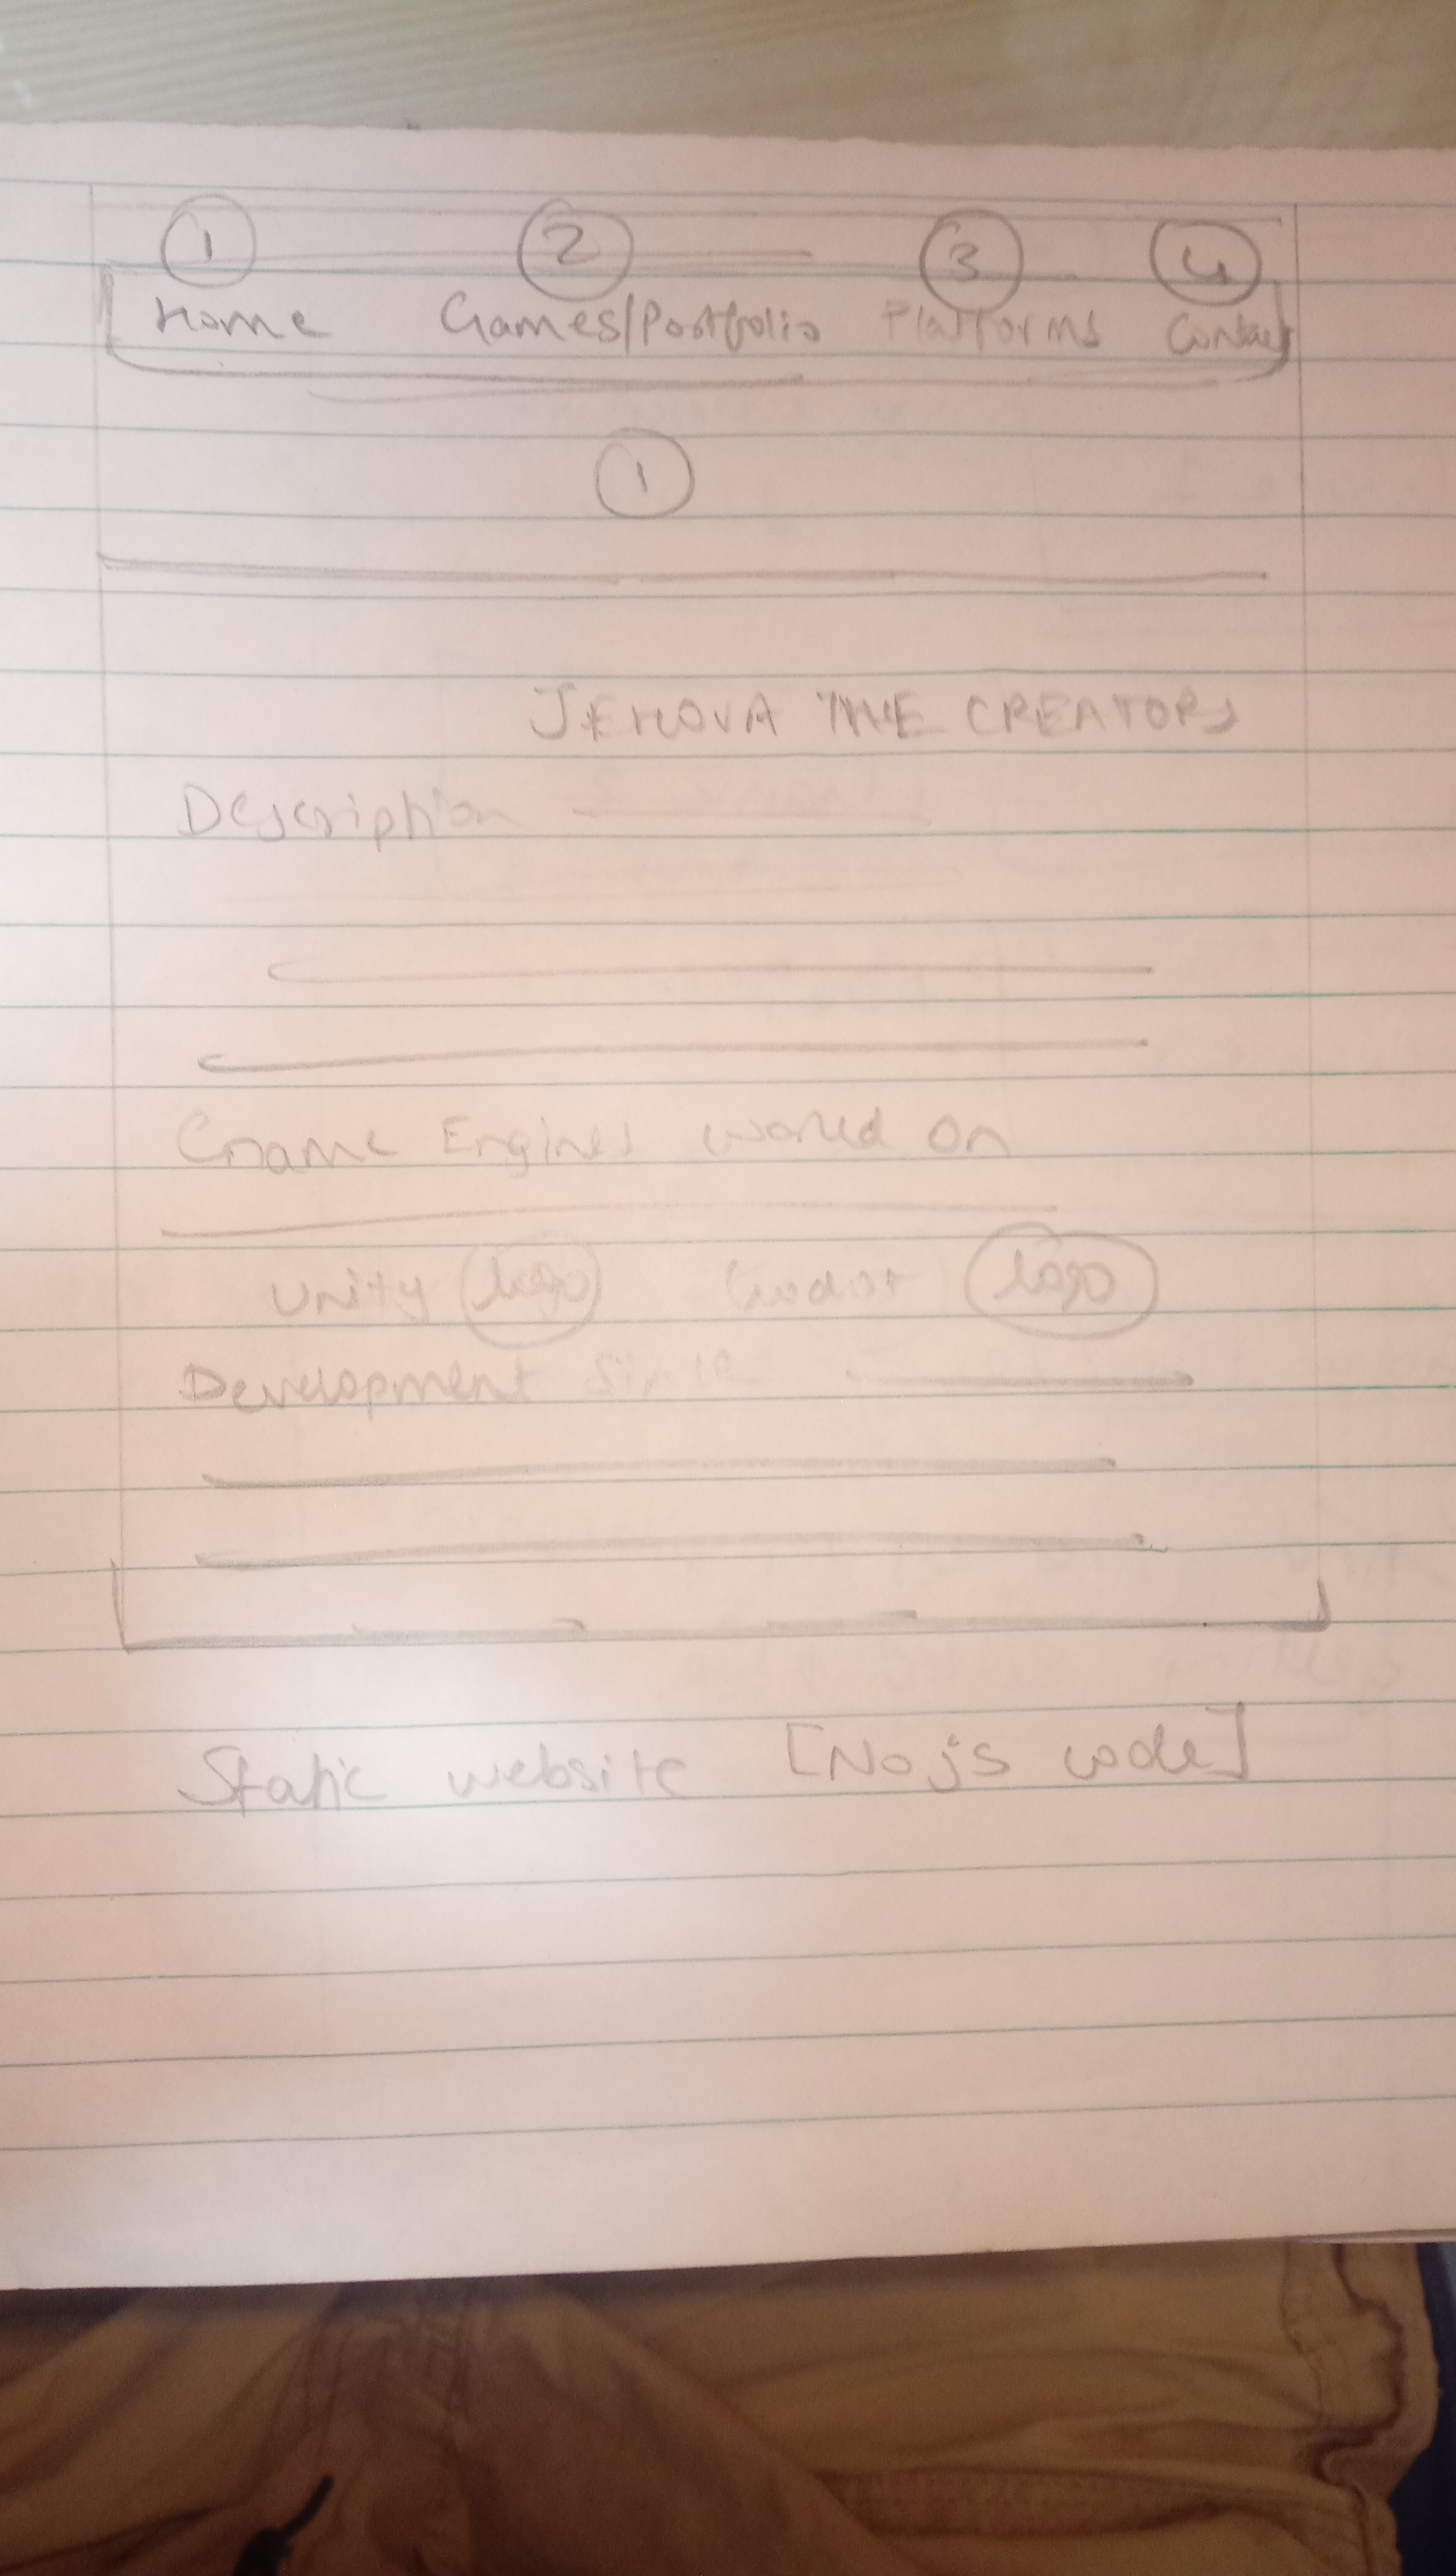 1 2 3 4
Home Games/Portfolio Platforms Contact
1
JEHOVA THE CREATORS
Description
Game Engines worked on
Unity logo Godot logo
Development Since
Static website [No js code]